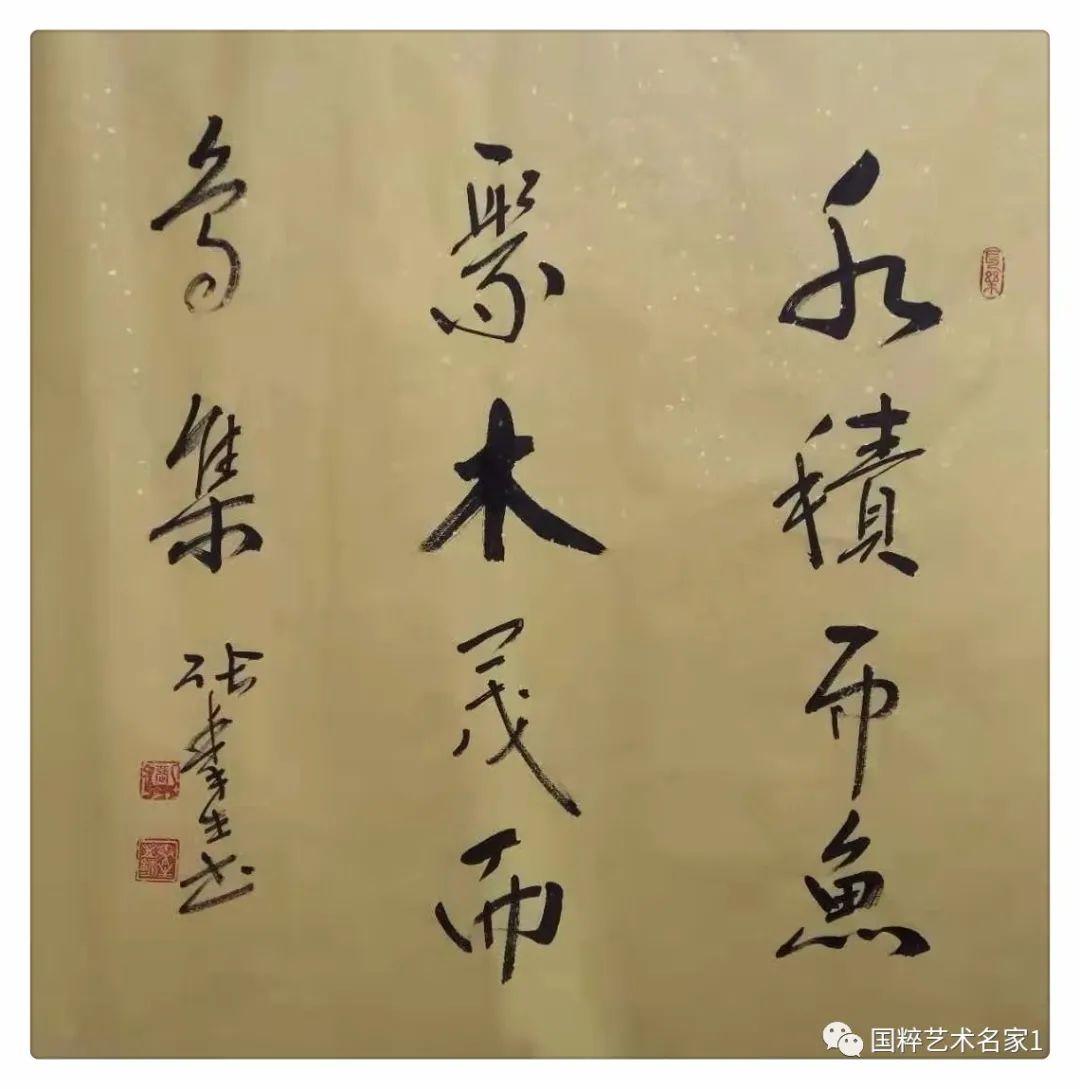 水積而魚
聚木茂而
鳥集 张生书
国粹艺术名家1